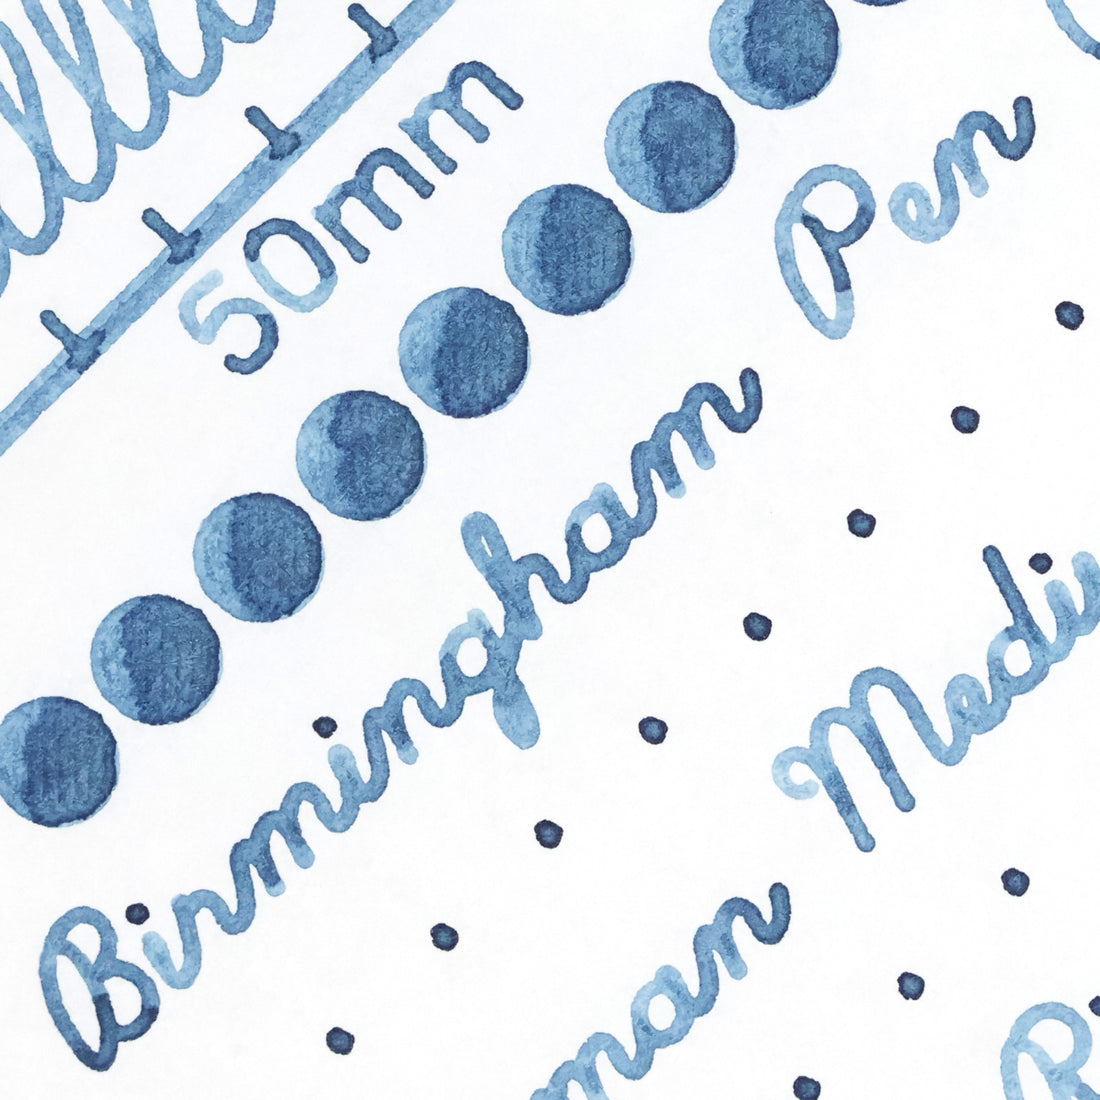 50mm
Birmingham Pen
man Medi
Ri